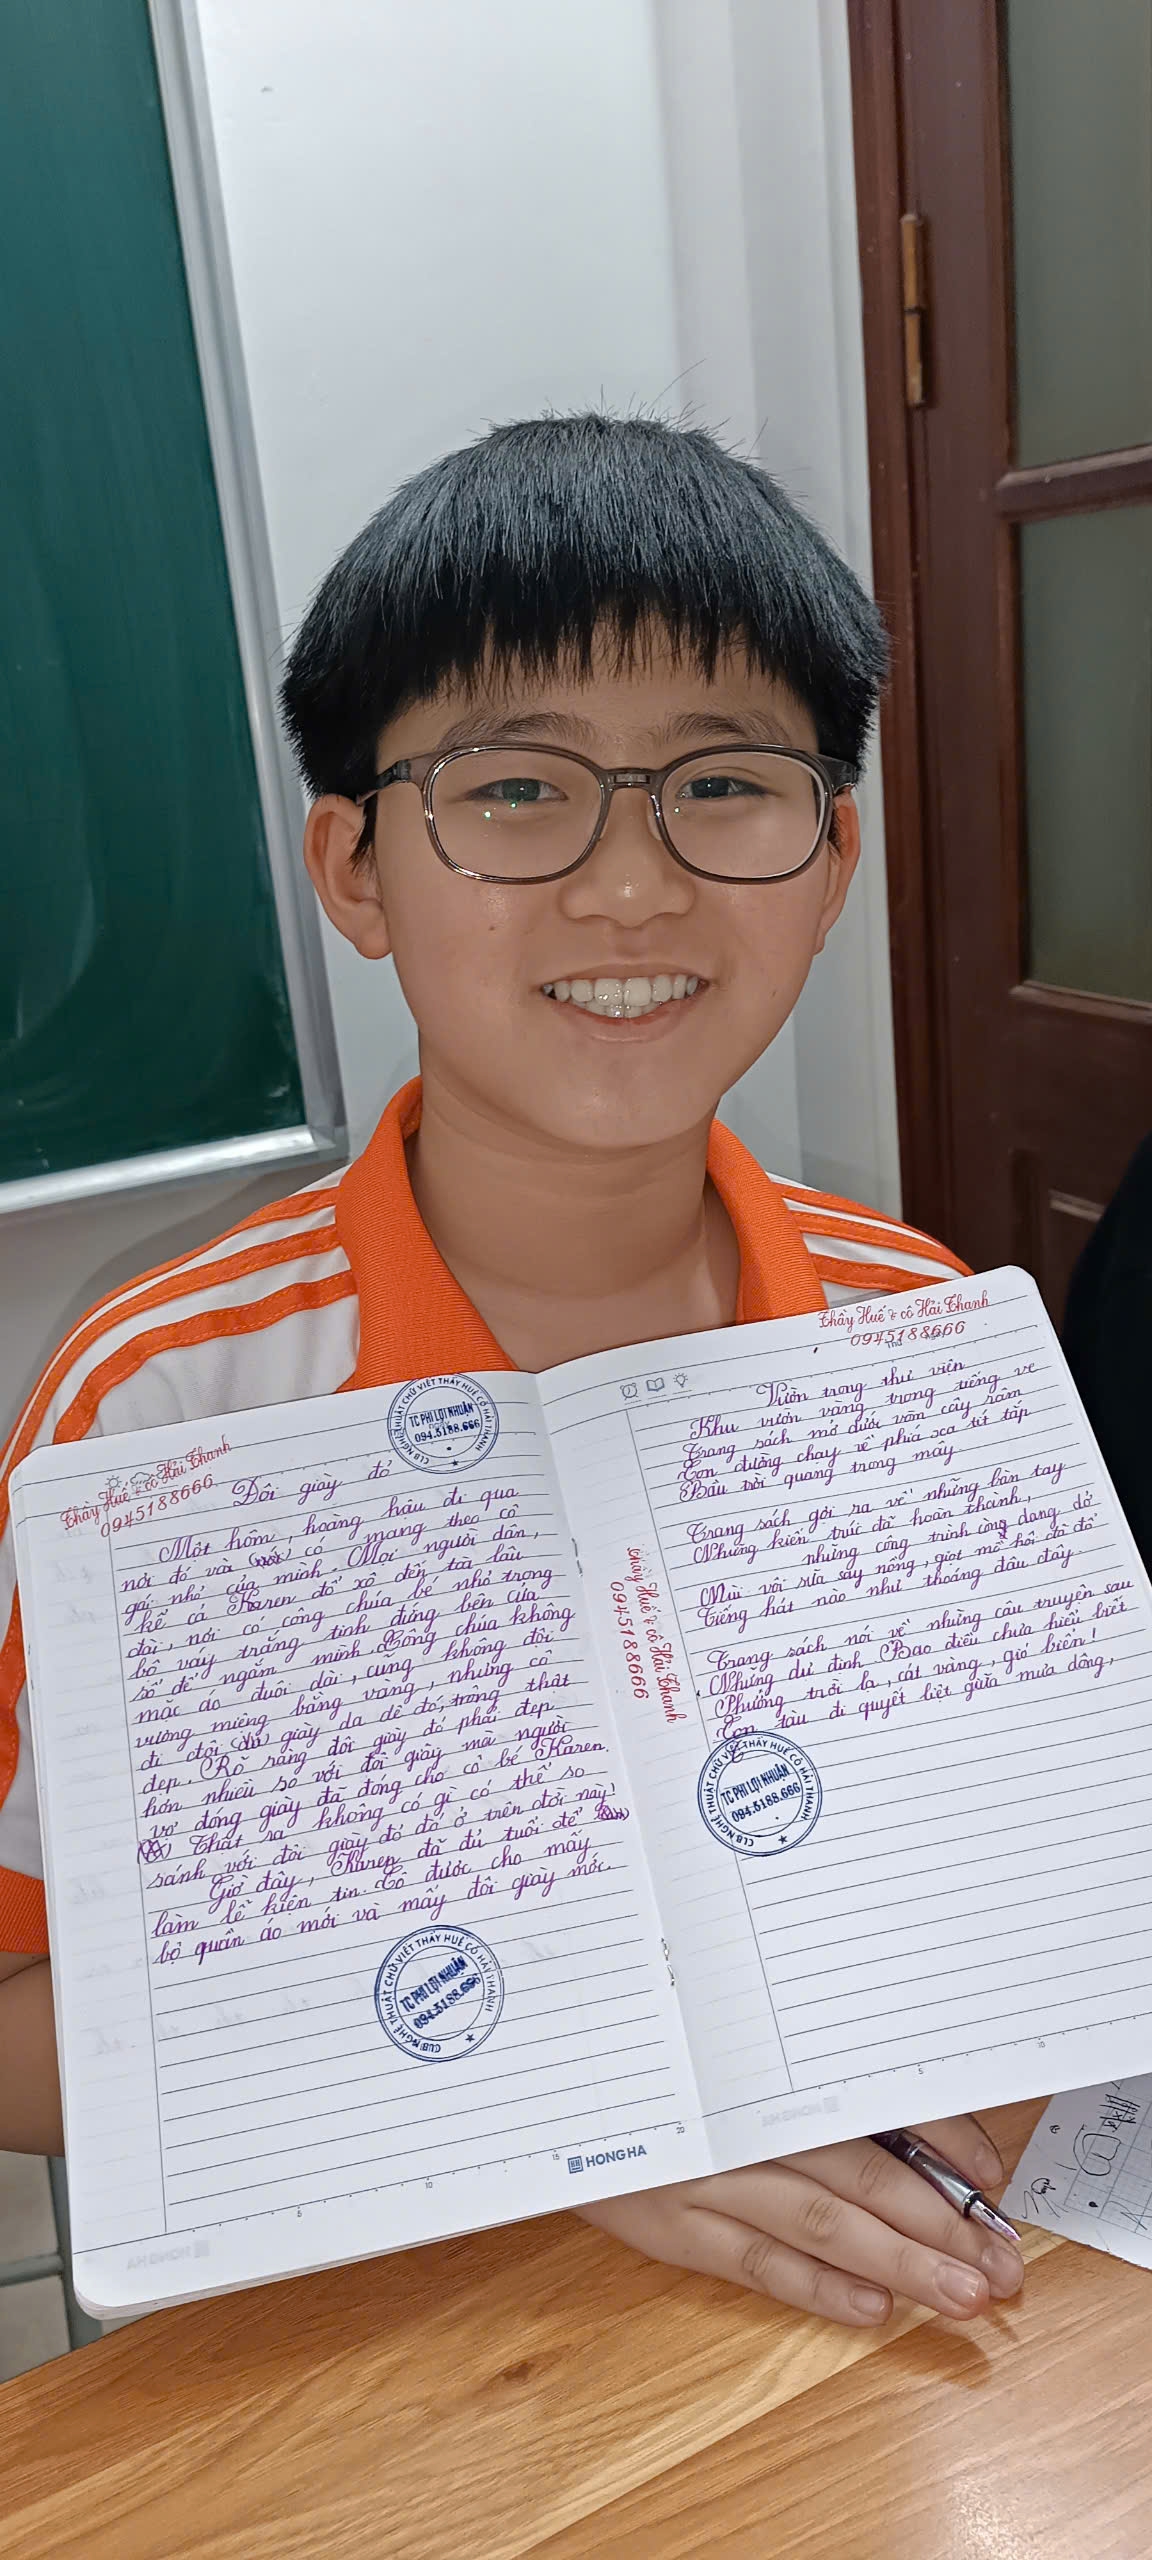 Thầy Huế & cô Hải Thanh
0945188666
CLB NGHỆ THUẬT CHỮ VIẾT THẦY HUẾ CÔ HẢI THANH
TC PHI LỢI NHUẬN
094.5188.666
Đôi giày đỏ
Một hôm, hoàng hậu đi qua
nơi đó và (nói) có mang theo cô
gái nhỏ của mình. Mọi người dân,
kể cả Karen đổ xô đến tòa lâu
đài, nơi có công chúa bé nhỏ trong
bộ váy trắng tinh đứng bên cửa
sổ để ngắm mình. Công chúa không
mặc áo đuôi dài, cũng không đội
vương miện bằng vàng, nhưng cô
đi đôi giày da dê đỏ, trông thật
đẹp. Rõ ràng đôi giày đó phải đẹp
hơn nhiều so với đôi giày mà người
vợ đóng giày đã đóng cho cô bé Karen.
Thật ra không có gì có thể so
sánh với đôi giày đỏ đó ở trên đời này!
Giờ đây, Karen đã đủ tuổi để
làm lễ kiên tin. Cô được cho mấy
bộ quần áo mới và mấy đôi giày mới.
CLB NGHỆ THUẬT CHỮ VIẾT THẦY HUẾ CÔ HẢI THANH
TC PHI LỢI NHUẬN
094.5188.666
HONG HA
5
10
15
20
Thầy Huế & cô Hải Thanh
0945188666
Thứ
Vườn trong thư viện
Khu vườn vàng trong tiếng ve
Trang sách mở dưới vòm cây râm
Con đường chạy về phía xa tít tắp
Bầu trời quang trong mây
Trang sách gợi ra về những bàn tay
Những kiến trúc đã hoàn thành,
những công trình còn dang dở
Mùi vôi vữa say nồng, giọt mồ hôi đã đổ
Tiếng hát nào như thoáng đâu đây.
Trang sách nói về những câu truyện sau
Những dự định Bao điều chưa hiểu biết
Phương trời lạ, cát vàng, gió biển!
Con tàu đi quyết liệt giữa mưa dông,
Thầy Huế & cô Hải Thanh
0945188666
CLB NGHỆ THUẬT CHỮ VIẾT THẦY HUẾ CÔ HẢI THANH
TC PHI LỢI NHUẬN
094.5188.666
5
10